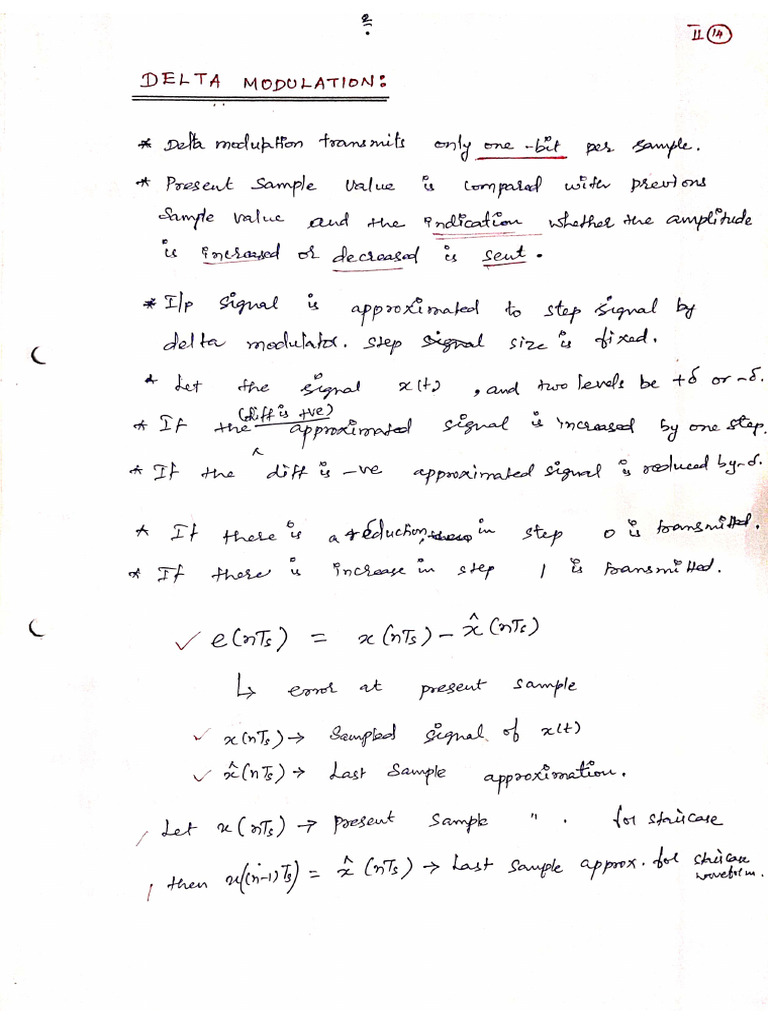 2
II 14
DELTA MODULATION:
* Delta modulation transmits only one-bit per sample.
* Present sample value is compared with previous
sample value and the indication whether the amplitude
is increased or decreased is sent.
* I/p signal is approximated to step signal by
delta modulator. step signal size is fixed.
* Let the signal x(t), and two levels be +δ or -δ.
(diff is +ve)
* If the approximated signal is increased by one step.
* If the diff is -ve approximated signal is reduced by -δ.
* If there is a reduction in step 0 is transmitted.
* If there is increase in step 1 is transmitted.
✓ e(nTs) = x(nTs) - x̂(nTs)
↳ error at present sample
✓ x(nTs) → Sampled signal of x(t)
✓ x̂(nTs) → Last sample approximation.
/ Let x(nTs) → present sample " . for staircase
/ then x((n-1)Ts) = x̂(nTs) → Last sample approx. for staircase
waveform.